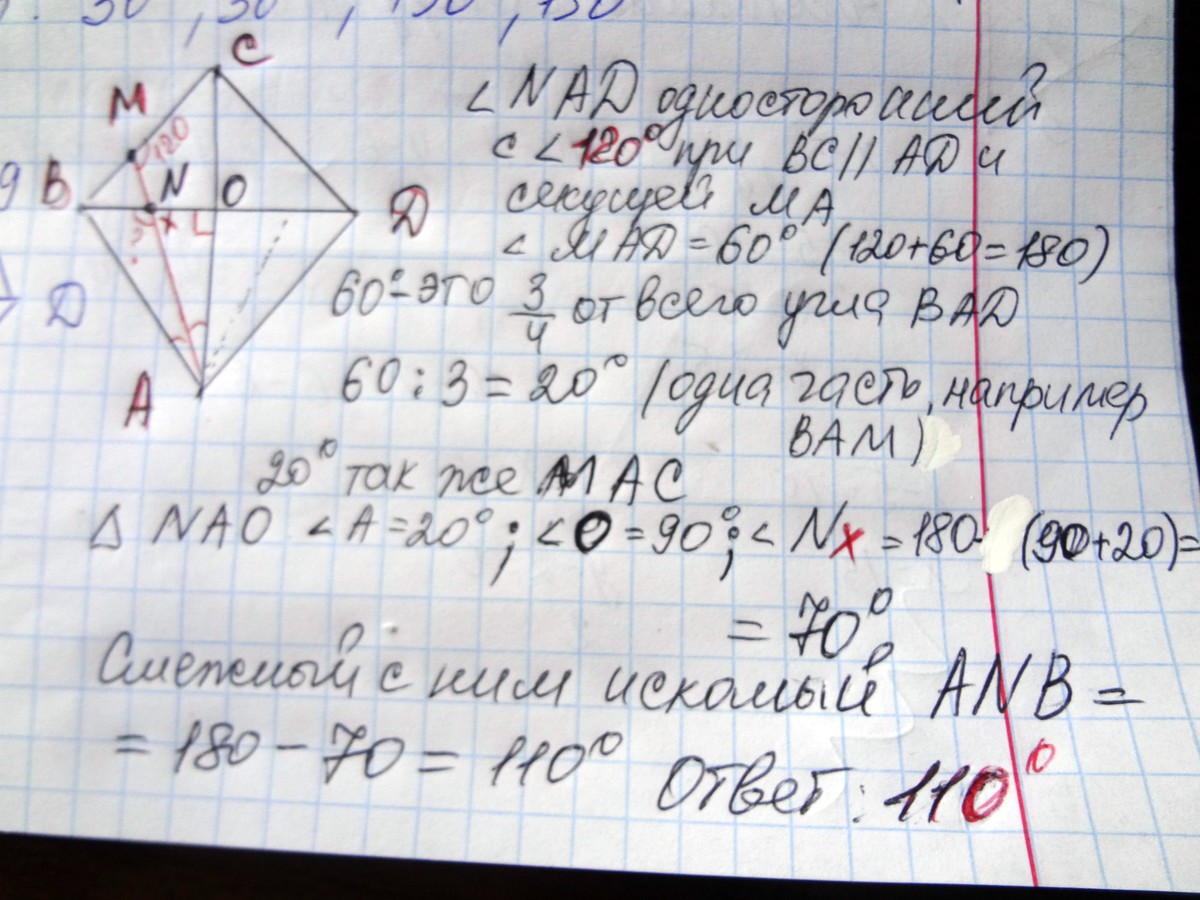 30°, 30°, 150°, 150°
C
M
120
B
N
O
D
х
?
D
A
∠NAD односторонний
с ∠120° при BC∥AD и
секущей MA
∠MAD=60° (120+60=180)
60°-это 3/4 от всего угла BAD
60:3=20° (одна часть, например
BAM)
20° так же MAC
△ NAO ∠A=20°; ∠O=90°; ∠Nх=180-(90+20)=
=70°
Смежный с ним искомый ANB=
=180-70=110° Ответ: 110°